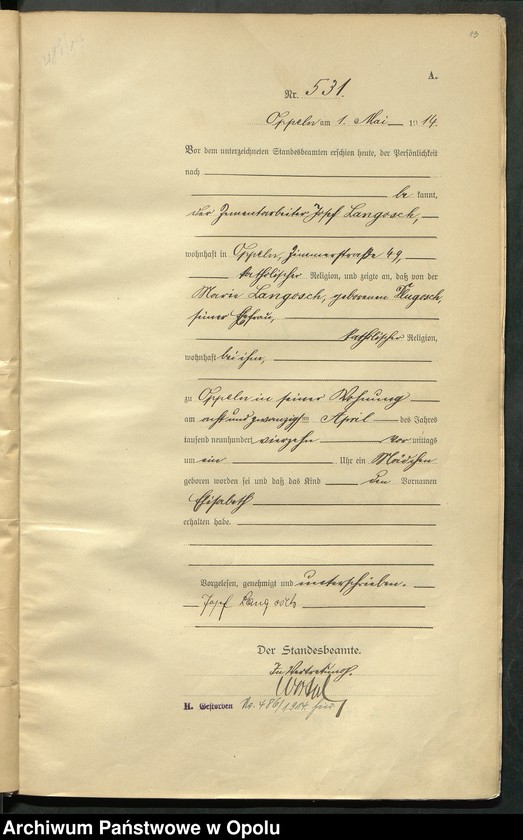 13
A.
Nr. 531.
Oppeln am 1. Mai 1914.
Vor dem unterzeichneten Standesbeamten erschien heute, der Persönlichkeit
nach
be kannt,
der Zementarbeiter Josef Langosch,
wohnhaft in Oppeln, Zimmerstraße 49,
katholischer Religion, und zeigte an, daß von der
Marie Langosch, geborenen
seiner Ehefrau,
katholischer Religion,
wohnhaft bei ihm,
zu Oppeln in seiner Wohnung
am acht und zwanzigsten April des Jahres
tausend neunhundert vierzehn vor mittags
um ein Uhr ein Mädchen
geboren worden sei und daß das Kind den Vornamen
Elisabeth
erhalten habe.
Vorgelesen, genehmigt und unterschrieben.
Josef
Der Standesbeamte.
In Vertretung.
H. Gestorben No. 486/1914
Archiwum Państwowe w Opolu